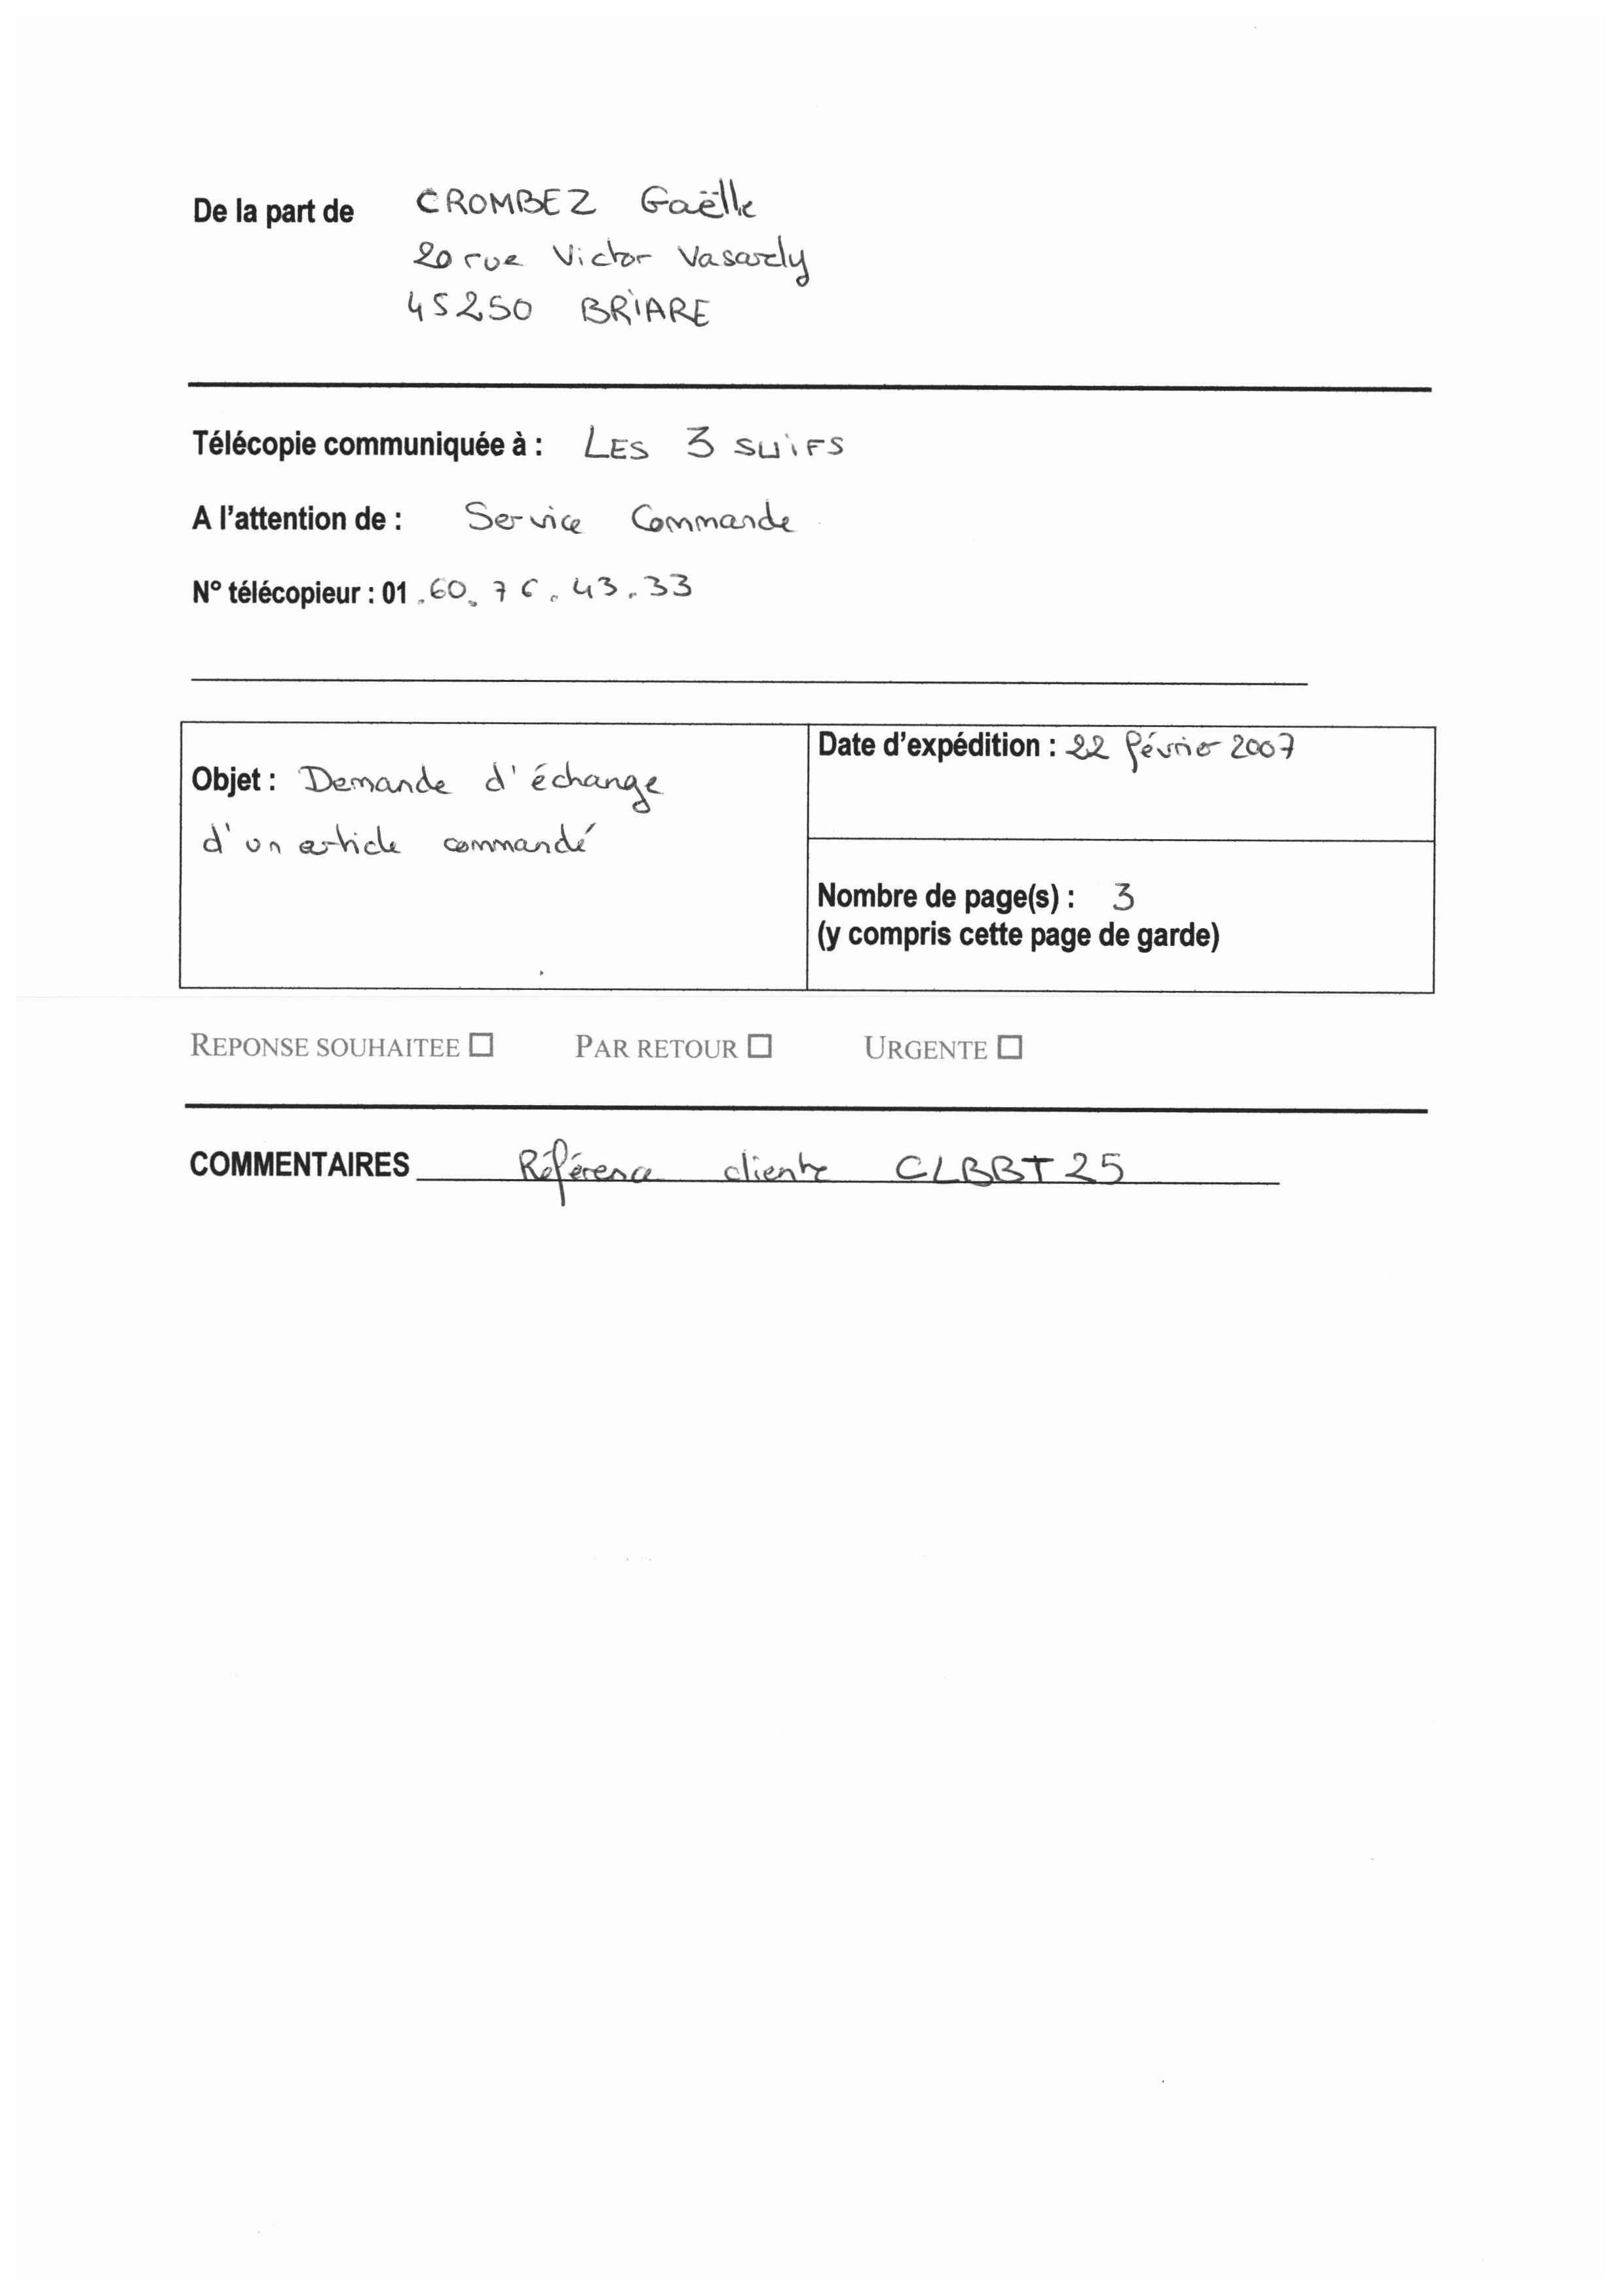 De la part de CROMBEZ Gaëlle
20 rue Victor Vasarely
45250 BRIARE
Télécopie communiquée à : LES 3 SUIFS
A l'attention de : Service Commande
N° télécopieur : 01.60.76.43.33
Date d'expédition : 22 février 2007
Objet : Demande d'échange
d'un article commandé
Nombre de page(s) : 3
(y compris cette page de garde)
REPONSE SOUHAITEE ☐ PAR RETOUR ☐ URGENTE ☐
COMMENTAIRES Référence cliente CLBBT25